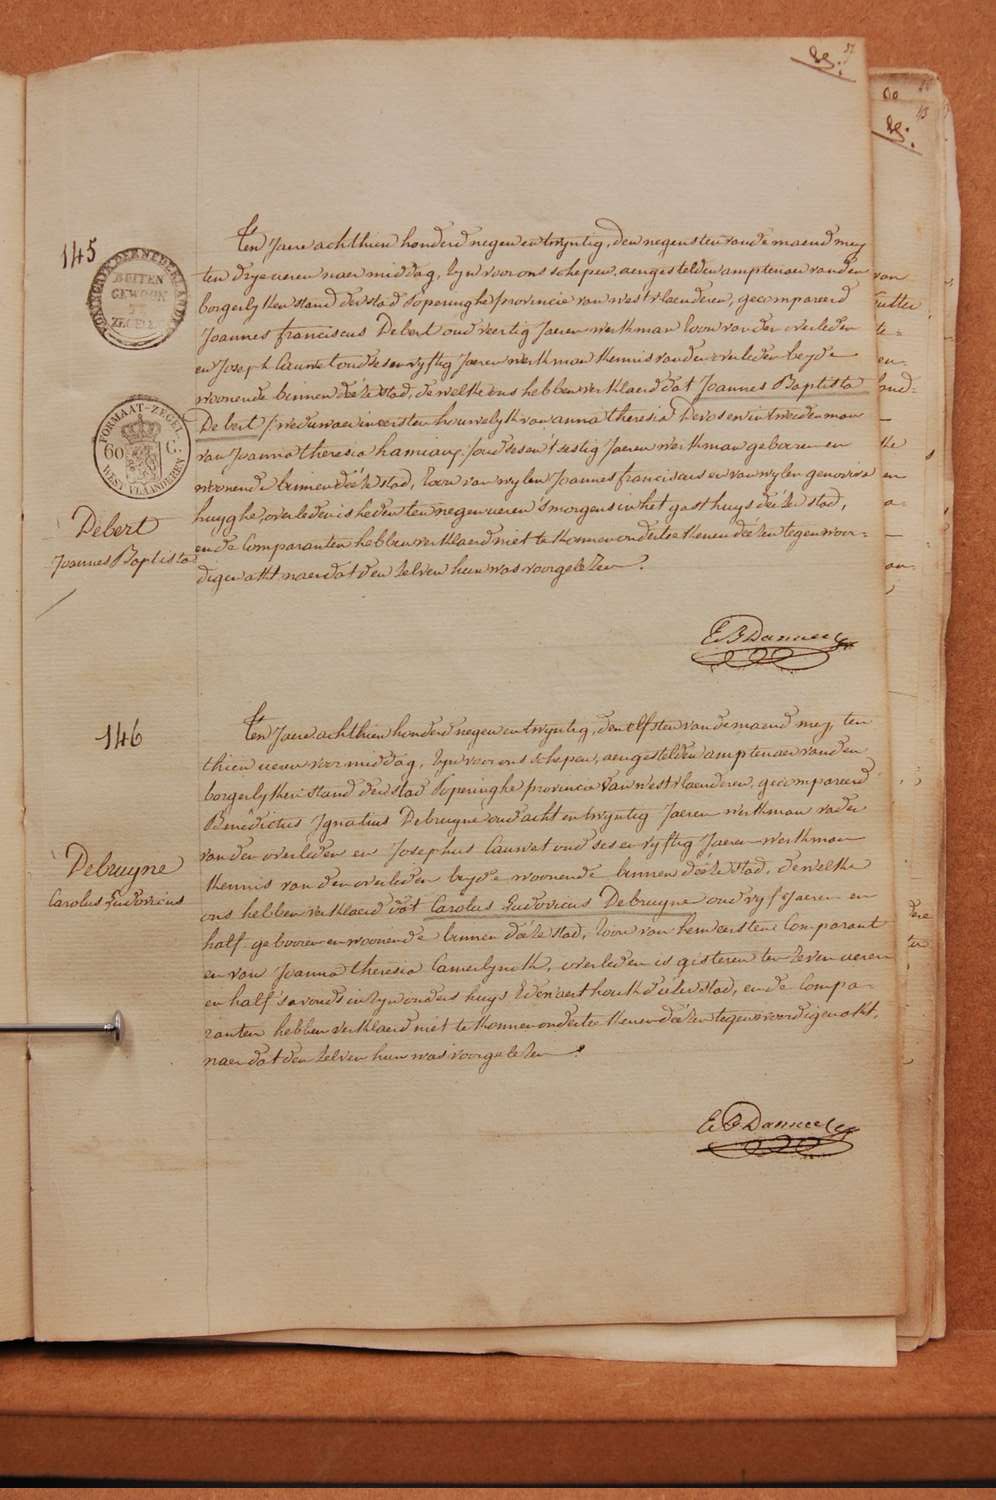 145
KONINGRYK DER NEDERLANDEN
BUITEN
GEWOON
ZEGEL
FORMAAT-ZEGEL
60 C.
WEST VLAANDEREN
Debert
Joannes Baptista
Ten Jaere achthien honderd negen en twyntig, den negensten van de maend mey
ten drye ueren naer middag, Zyn voor ons schepen, aengestelden amptenaer van den
borgerlyken stand der stad Poperinghe provincie van westvlaenderen, gecompareerd
Joannes franciscus Debert oud veertig Jaeren werkman Zoon van den overleden
en Joseph Cauwet oud ses en vyftig Jaeren werkman kennis van den overleden beyde
woonende binnen deéze stad, de welke ons hebben verklaerd dat Joannes Baptista
Debert / weduwaer in eersten houwelyk van anna theresia Devos en in tweeden man
van Joanna theresia hamiaux / oud ses en 't sestig Jaeren werkman gebooren en
woonende binnen deéze stad, Zoon van wylen Joannes franciscus en van wylen genoviva
huyghe, overleden is heden ten negen ueren 's morgens in het gasthuys deézer stad,
en de Comparanten hebben verklaerd niet te konnen onderteekenen deézen tegenwoor=
digen akt naer dat den zelven hun was voorgelezen.
E B Danneel
146
Debruyne
Carolus Ludovicus
Ten Jaere achthien honderd negen en twyntig, den elfsten van de maend mey, ten
thien ueren voormiddag, Zyn voor ons schepen, aengestelden amptenaer van den
borgerlyken stand der stad Poperinghe provincie van westvlaenderen, gecompareerd
Benedictus Ignatius Debruyne oud acht en twyntig Jaeren werkman vader
van den overleden en Josephus Cauwet oud ses en vyftig Jaeren werkman
kennis van den overleden beyde woonende binnen deéze stad, de welke
ons hebben verklaerd dat Carolus Ludovicus Debruyne oud vyf Jaeren en
half gebooren en woonende binnen deéze stad, Zoon van hem eersten Comparant
en van Joanna theresia Camerlynck, overleden is gisteren ten zeven ueren
en half 's avonds in Zyn ouders huys deézer stad, en de Compa=
ranten hebben verklaerd niet te konnen onderteekenen deézen tegenwoordigen akt,
naer dat den zelven hun was voorgelezen.
E B Danneel